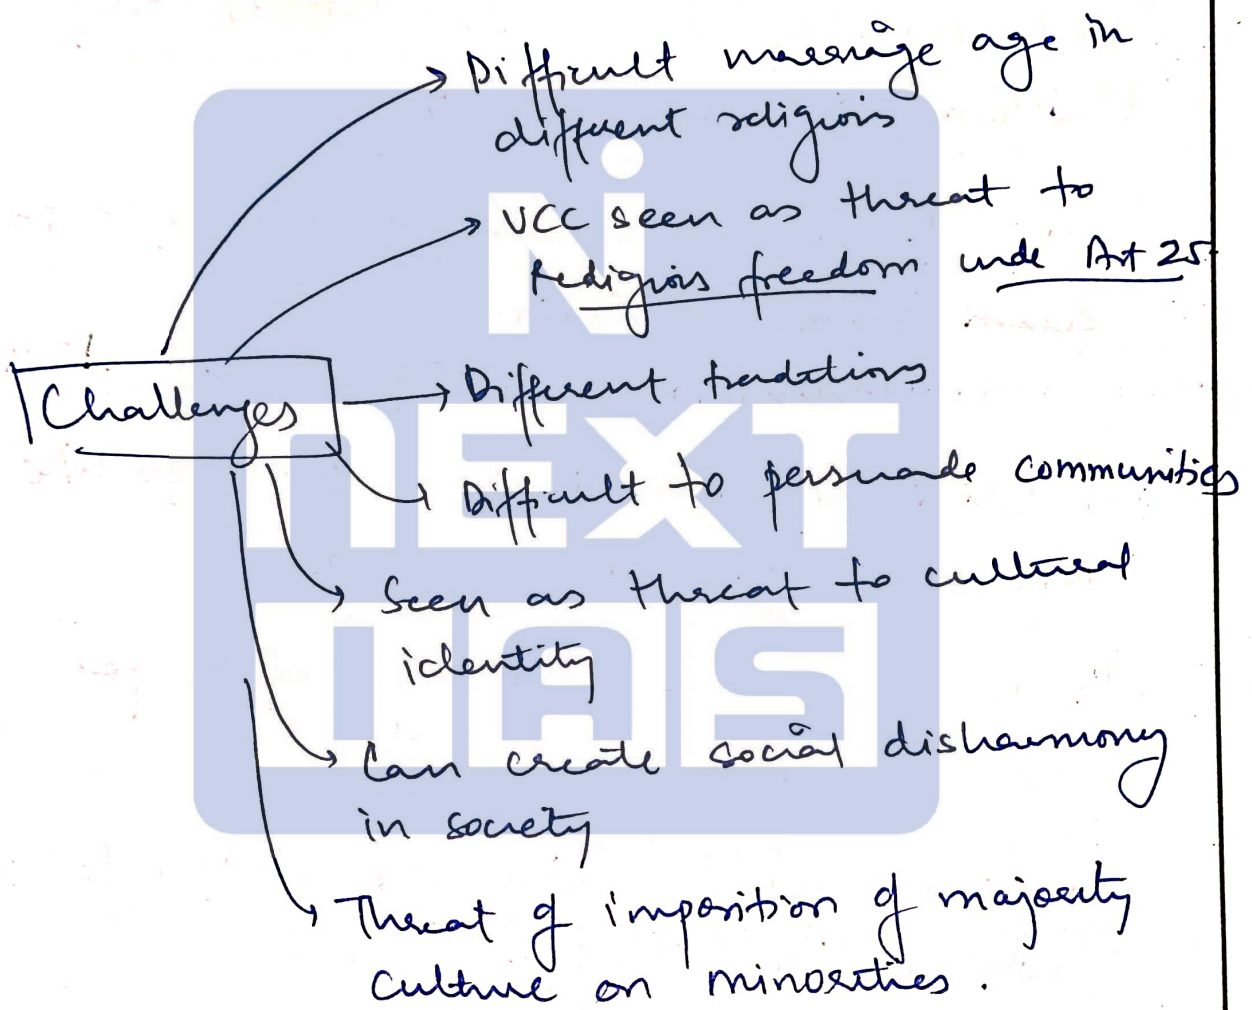 Difficult marriage age in
different religions
UCC seen as threat to
Religious freedom unde Art 25
Challenges
Different traditions
Difficult to persuade communities
Seen as threat to cultural
identity
Can create social disharmony
in society
Threat of imposition of majority
culture on minorities.
NEXT
IAS